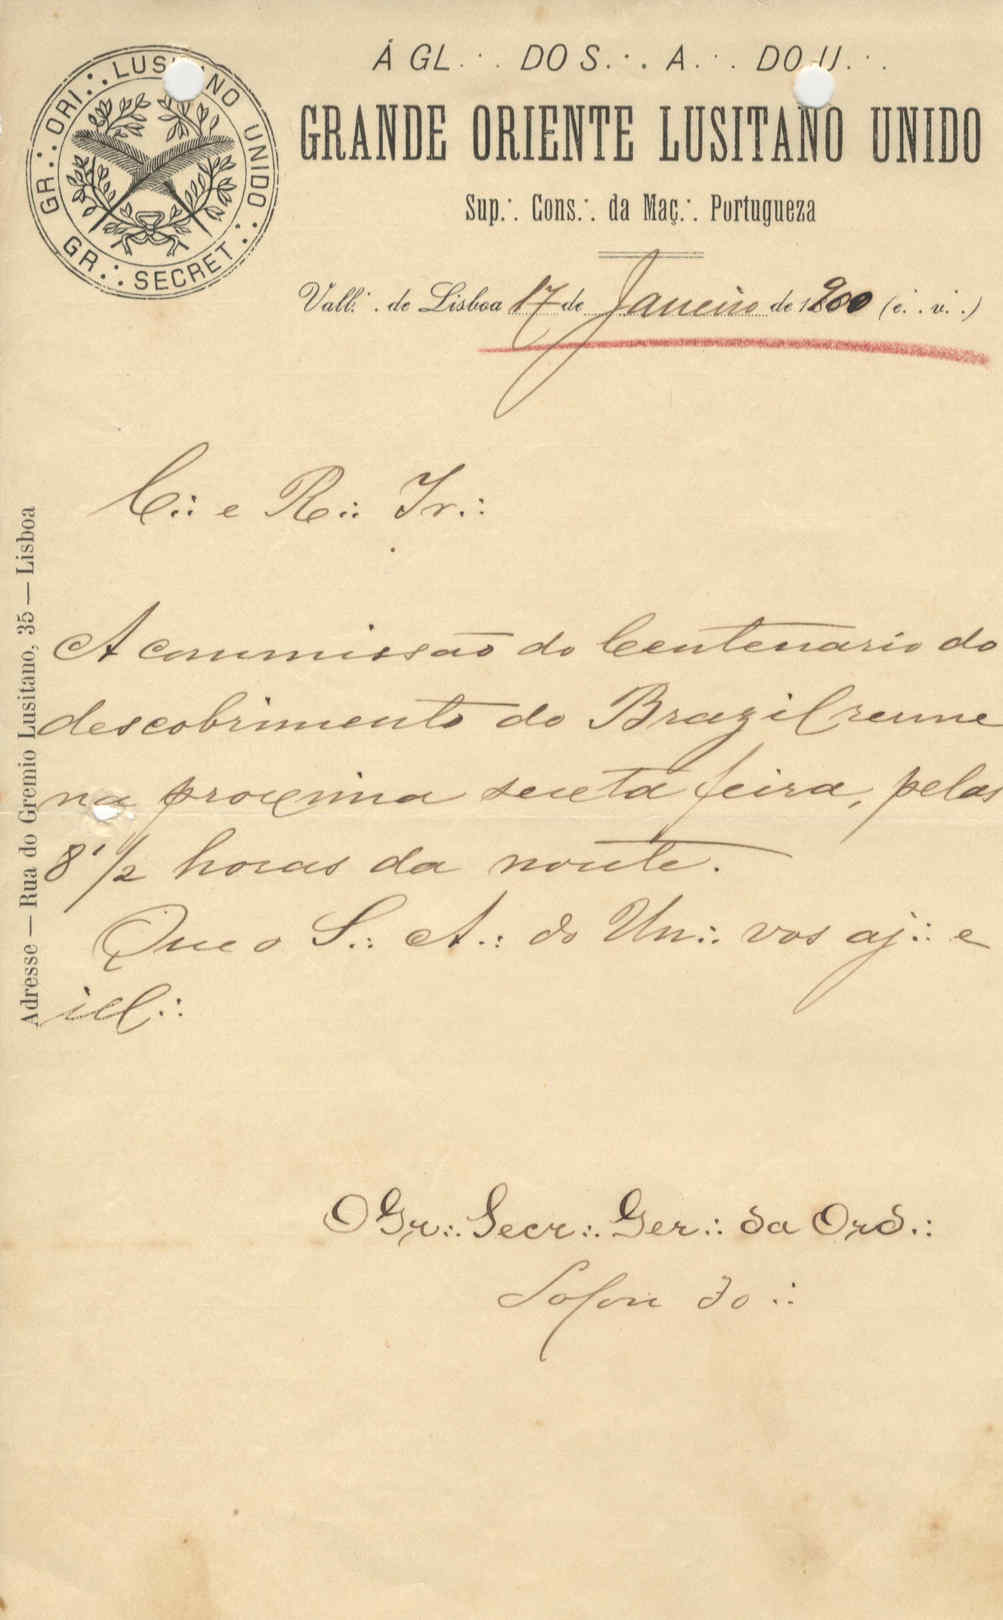 Á GL∴ DO S∴ A∴ DO U∴
GRANDE ORIENTE LUSITANO UNIDO
Sup∴ Cons∴ da Maç∴ Portugueza
GR∴ ORI∴ LUSITANO UNIDO∴
GR∴ SECRET∴
Vall∴ de Lisboa 17 de Janeiro de 1900 (e∴ v∴)
C∴ e R∴ Ir∴
A commissão do Centenario do
descobrimento do Brazil reune
na proxima sexta feira, pelas
8 1/2 horas da noute.
Que o S∴ A∴ do Un∴ vos aj∴ e
ill∴
O Gr∴ Secr∴ Ger∴ da Ord∴
Adresse — Rua do Gremio Lusitano, 35 — Lisboa